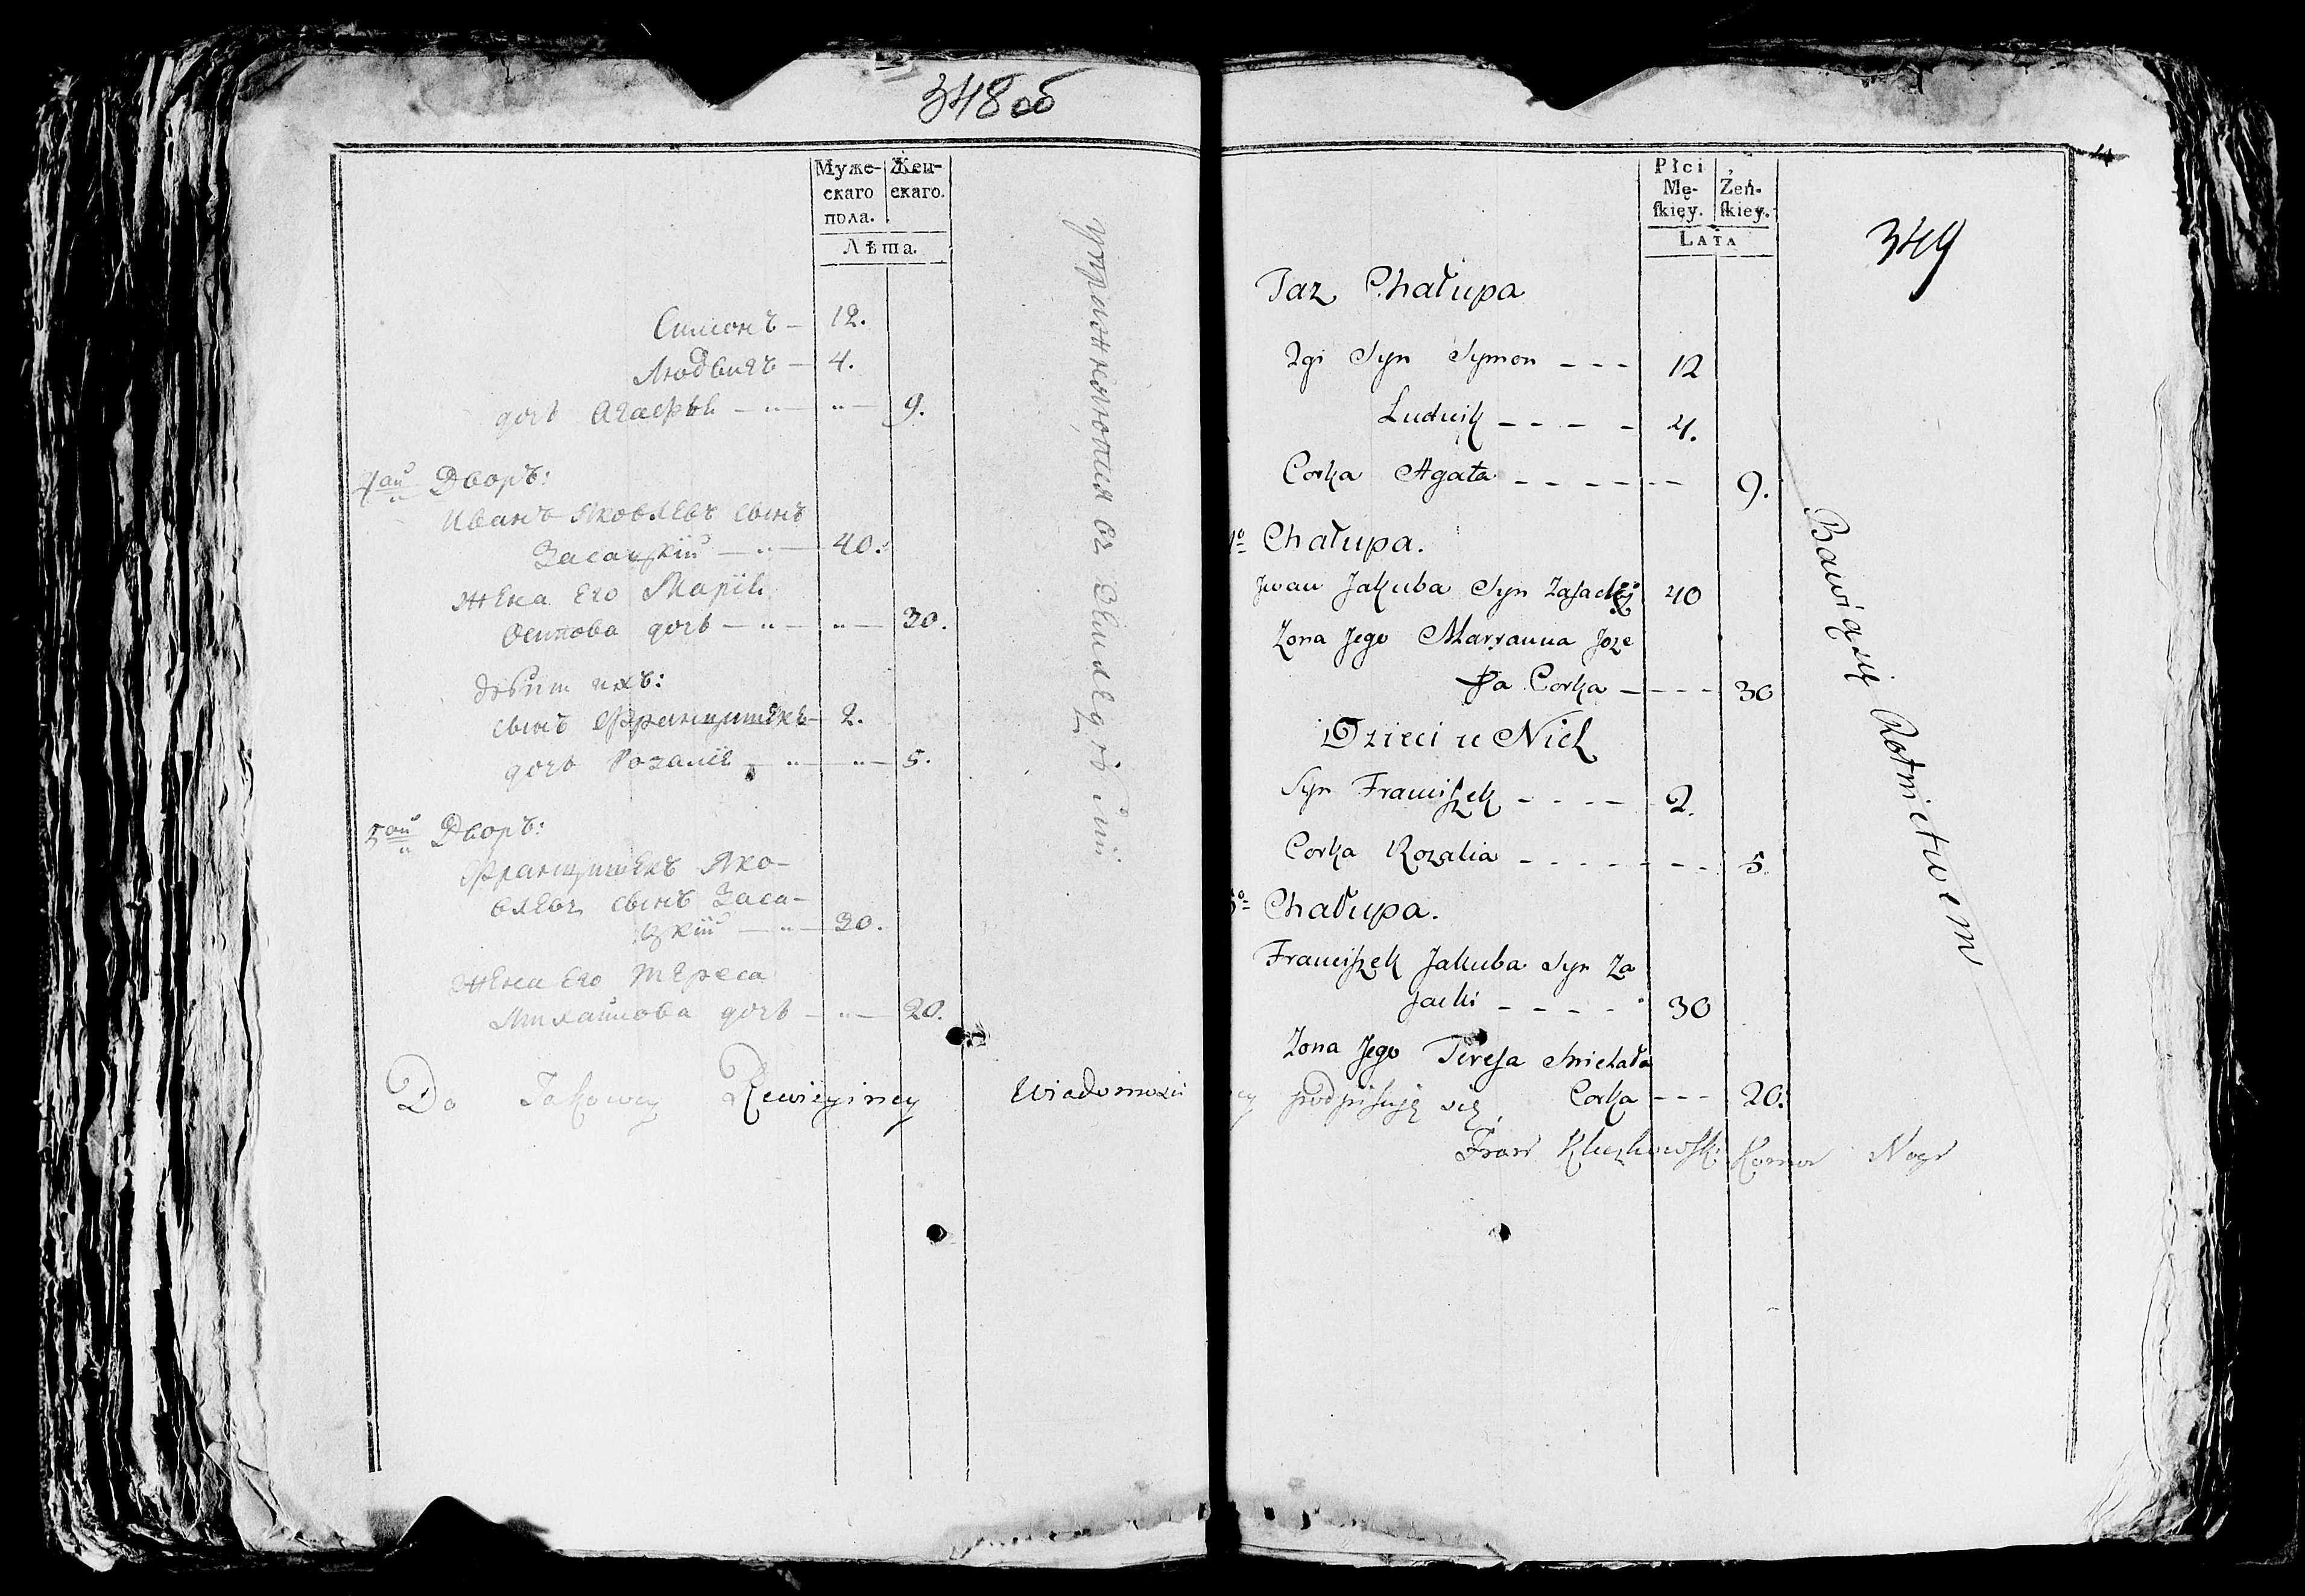 348 об
Муже-
скаго
пола.
Жен-
скаго.
Лѣта.
Симонъ — 12.
Людвикъ — 4.
дочь Агафья — " — " — 9.
4ый Дворъ:
Иванъ Яковлевъ сынъ
Засацкій — " — 40.
жена его Марія
Осипова дочь — " — " — 30.
дѣти ихъ:
сынъ Францишекъ — 2.
дочь Розалія — " — " — 5.
5ый Дворъ:
Францишекъ Яко-
влевъ сынъ Заса-
цкій — " — 30.
жена его Тереса
Михайлова дочь — " — 20.
упражняющіяся въ
Do Takowey Rewizyiney Wiadomości
349
Płci
Mę-
ſkiey.
Żeń-
ſkiey.
LATA
Taz Chałupa
2gi Syn Symon - - - 12
Ludwik - - - - 4.
Corka Agata - - - - - - 9.
4º Chałupa.
Jwan Jakuba Syn Zaſacki 40
Zona Jego Maryanna Joze
fa Corka - - - - 30
Dzieci u Nich
Syn Franciſzek - - - - 2.
Corka Rozalia - - - - - - - 5.
5º Chałupa.
Franciſzek Jakuba Syn Za
ſacki - - - - 30
Zona Jego Tereſa Michała
Corka - - - 20.
podpiſuję się
Fran
Bawiący Rolnictwem